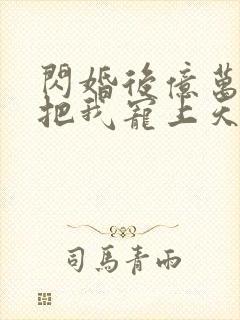 閃婚後億萬
把我寵上天
司馬青雨